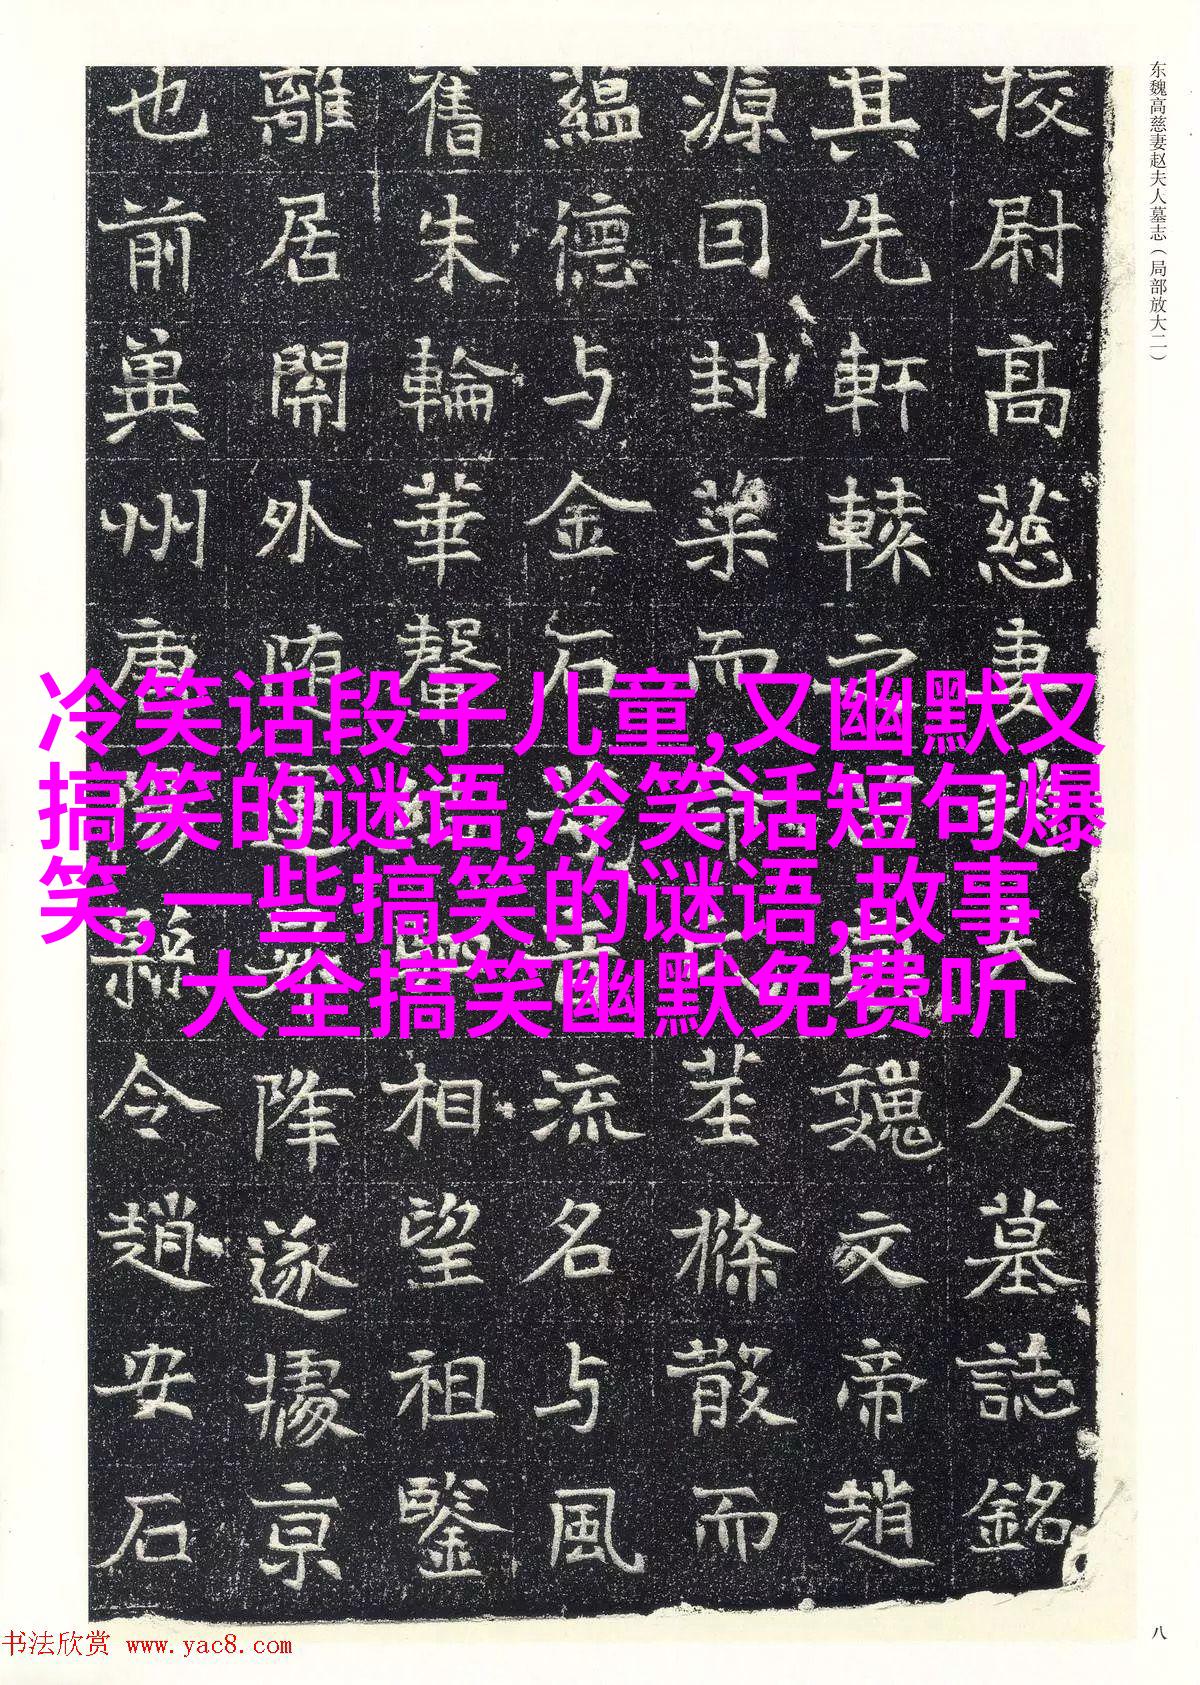 东魏高慈妻赵夫人墓志（局部放大二）
挍尉高慈妻趙夫人墓誌銘
其先軒轅之魏文帝趙
源囙封而茎條散而
蘊德与金石流名与風
舊朱輪華相望祖鑒
離居開外降遂據京
也前兾州縣令趙安石
冷笑话段子儿童,又幽默又
搞笑的谜语,冷笑话短句爆
笑,一些搞笑的谜语,故事
大全搞笑幽默免费听
八
书法欣赏 www.yac8.com